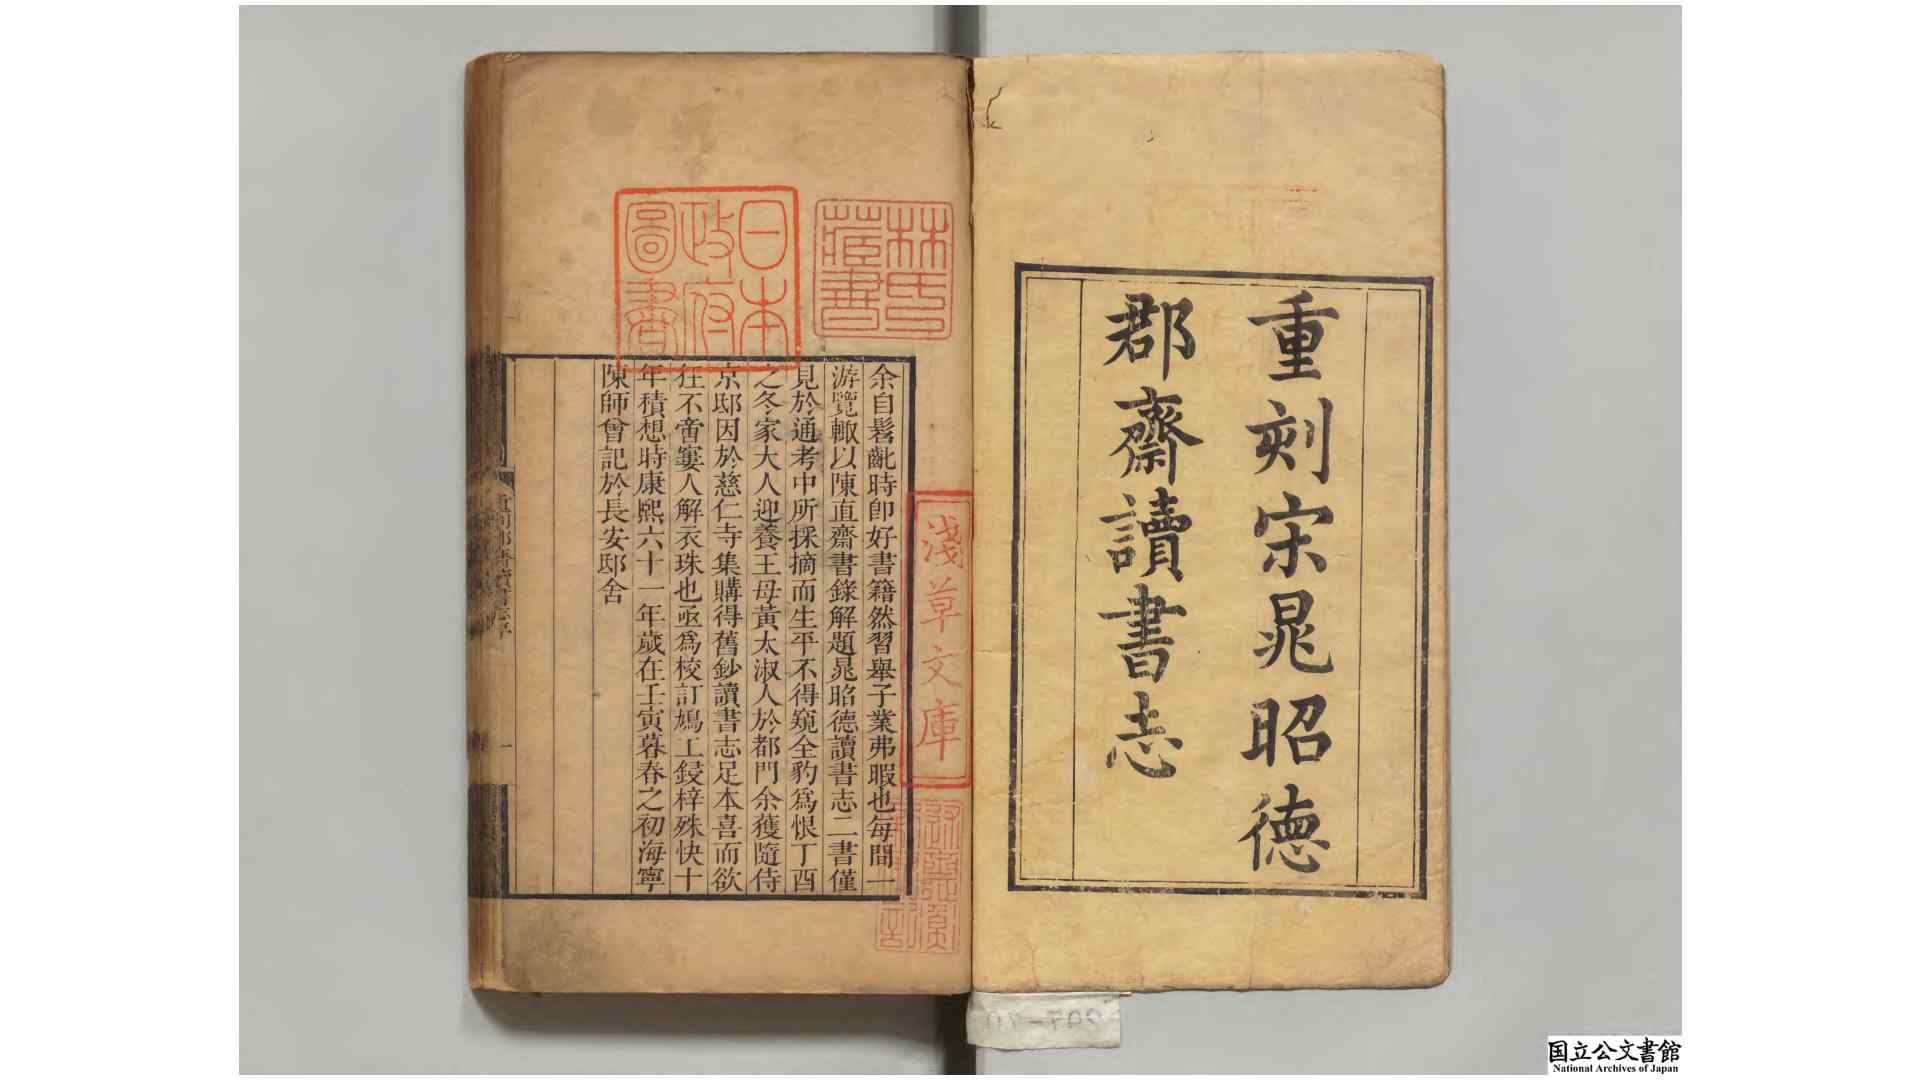 重刻宋晁昭德
郡齋讀書志
林氏
藏書
日本
政府
圖書
淺草文庫
余自髫齔時卽好書籍然習舉子業弗暇也每間一
游覽輙以陳直齋書錄解題晁昭德讀書志二書僅
見於通考中所採摘而生平不得窺全豹爲恨丁酉
之冬家大人迎養王母黃太淑人於都門余獲隨侍
京邸因於慈仁寺集購得舊鈔讀書志足本喜而欲
狂不啻窶人解衣珠也亟爲校訂鳩工鋟梓殊快十
年積想時康熙六十一年歲在壬寅暮春之初海寧
陳師曾記於長安邸舍
国立公文書館
National Archives of Japan